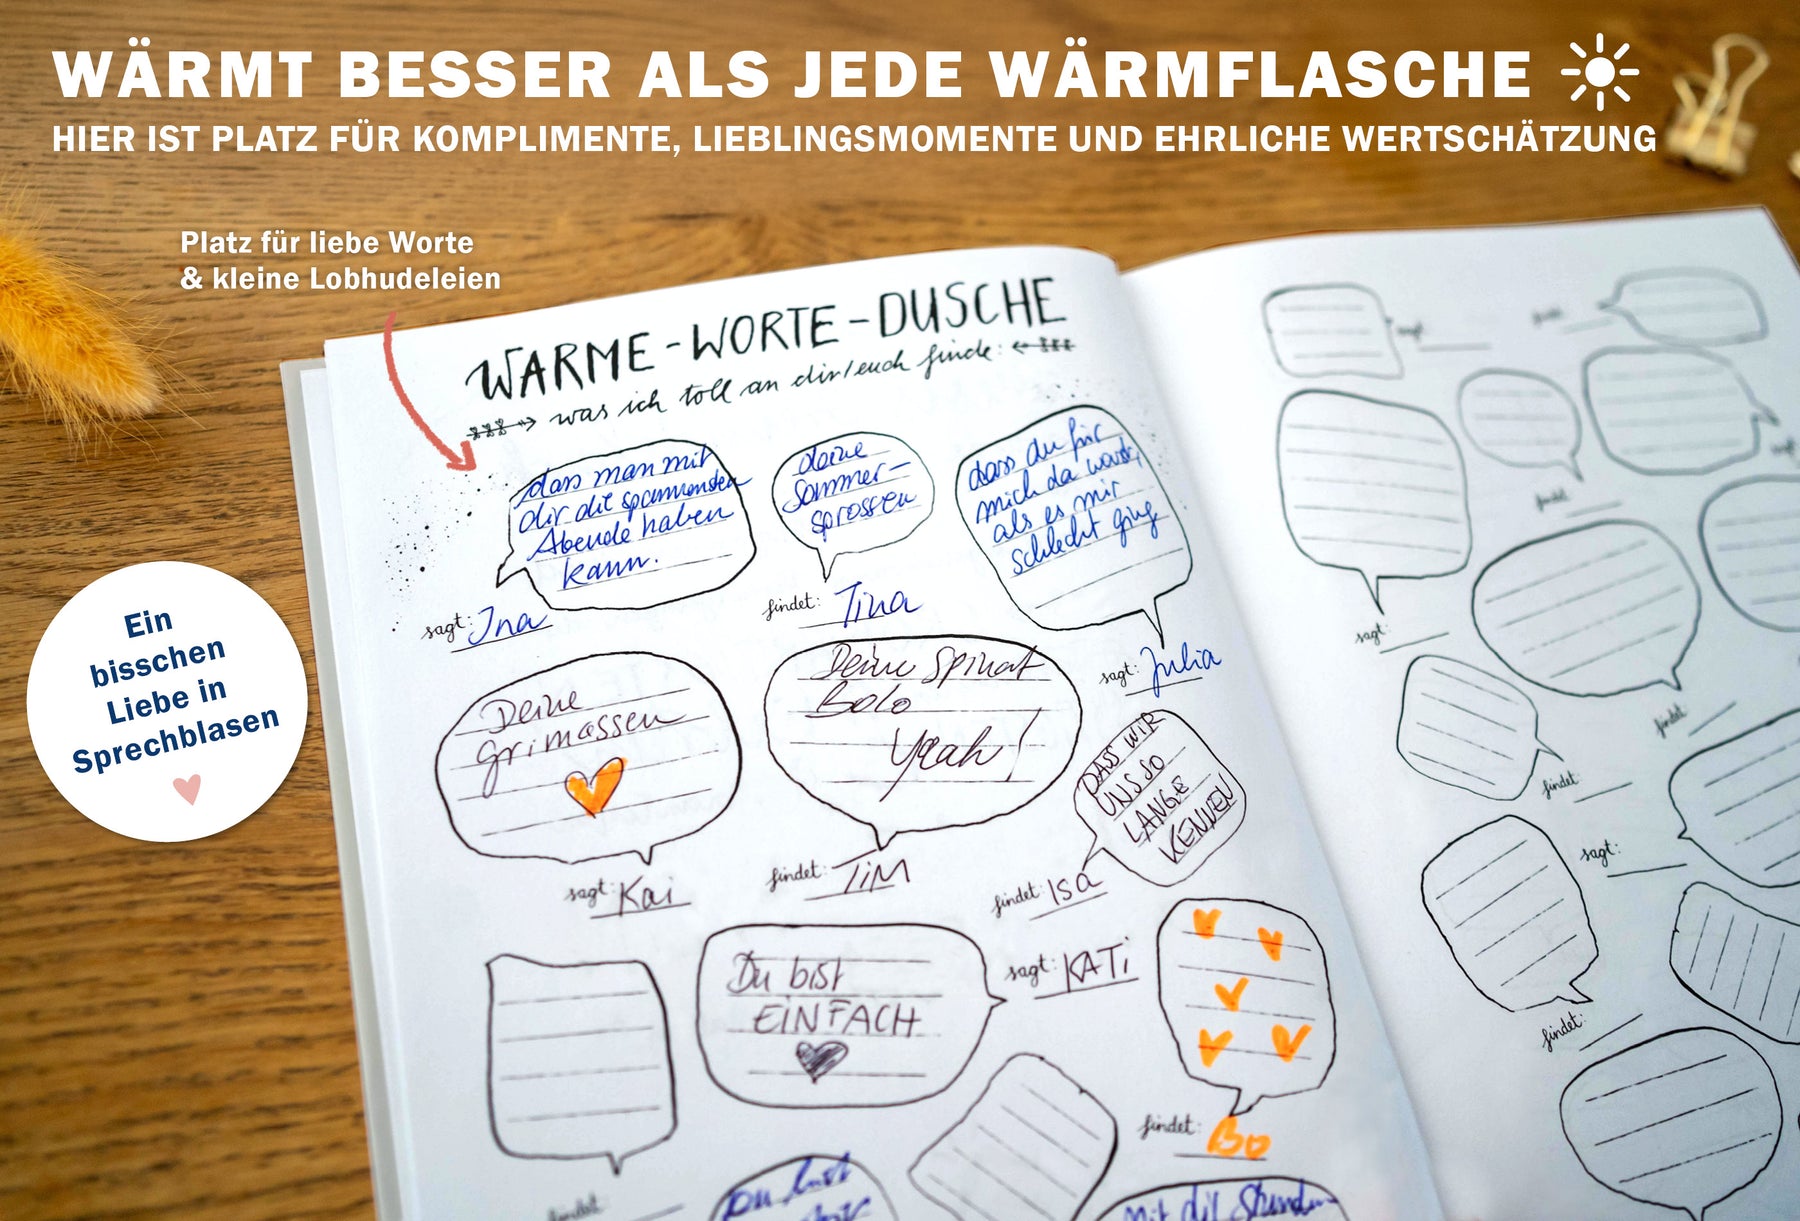 WÄRMT BESSER ALS JEDE WÄRMFLASCHE
HIER IST PLATZ FÜR KOMPLIMENTE, LIEBLINGSMOMENTE UND EHRLICHE WERTSCHÄTZUNG
Platz für liebe Worte
& kleine Lobhudeleien
WARME-WORTE-DUSCHE
was ich toll an dir/euch finde:
dass man mit
dir die spannensten
Abende haben
kann.
sagt: Ina
deine
Sommer-
sprossen
findet: Tina
dass du für
mich da warst,
als es mir
schlecht ging
sagt: Julia
Ein
bisschen
Liebe in
Sprechblasen
Deine
Grimassen
sagt: Kai
Deine Spinat
Bolo
Yeah!
findet: TiM
DASS WIR
UNS SO
LANGE
KENNEN
findet: ISA
Du bist
EiNFACH
sagt: KATi
findet: Bo
findet:
Du bist
Mit dir
sagt:
findet:
sagt:
findet:
findet:
findet:
sagt:
findet: